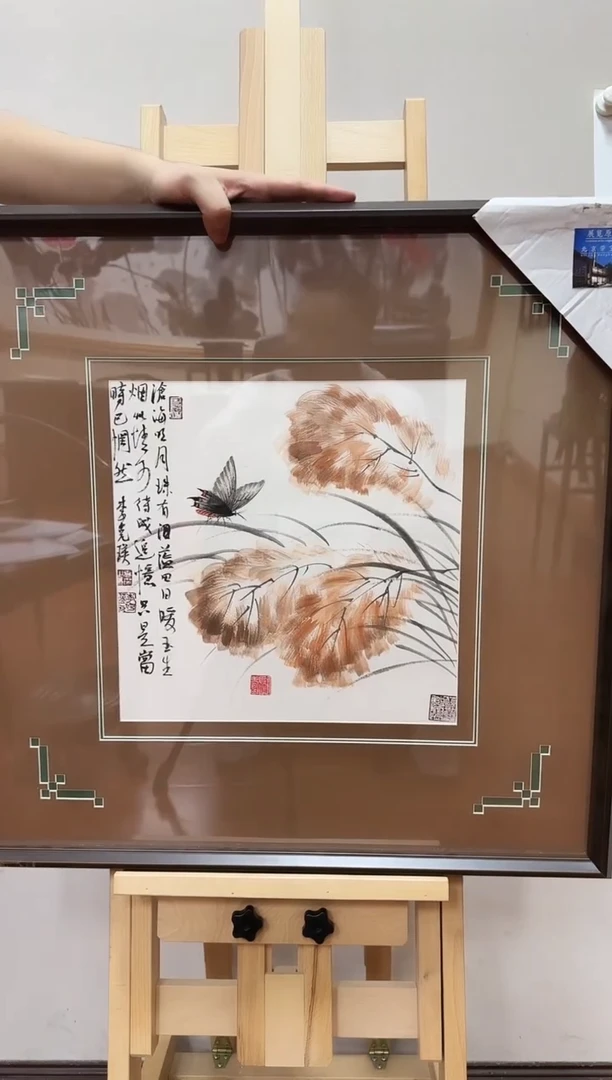 滄海明月珠有泪蓝田日暖玉生
烟此情可待成追憶只是當
時已惘然 李克